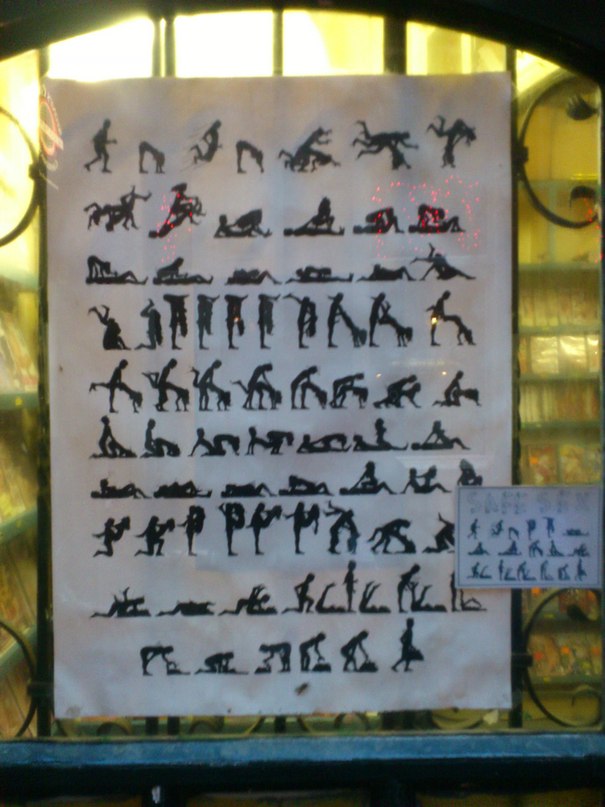 SAFE SEX